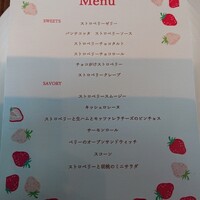 Menu
SWEETS
ストロベリーゼリー
パンナコッタ ストロベリーソース
ストロベリーチョコタルト
ストロベリーチョコロール
チョコがけストロベリー
ストロベリークレープ
SAVORY
ストロベリースムージー
キッシュロレーヌ
ストロベリーと生ハムとモッツァレラチーズのピンチョス
サーモンロール
ベリーのオープンサンドウィッチ
スコーン
ストロベリーと胡桃のミニサラダ